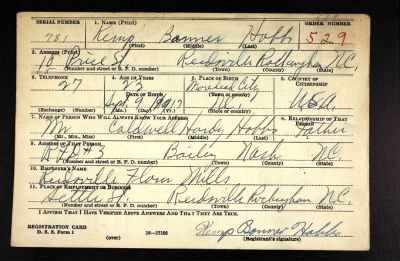 SERIAL NUMBER 1. NAME (Print) ORDER NUMBER
781 Kemp Banner Hobbs 529
(First) (Middle) (Last)
2. ADDRESS (Print)
Price St. Reidsville Rockingham N.C.
(Number and street or R. F. D. number) (Town) (County) (State)
3. TELEPHONE 4. AGE IN YEARS 5. PLACE OF BIRTH 6. COUNTRY OF CITIZENSHIP
27 23 Morehead City
DATE OF BIRTH (Town or county)
Sept. 9 1917 N.C. U.S.A.
(Exchange) (Number) (Mo.) (Day) (Yr.) (State or country)
7. NAME OF PERSON WHO WILL ALWAYS KNOW YOUR ADDRESS 8. RELATIONSHIP OF THAT PERSON
Mr. Caldwell Hobbs Father
(Mr., Mrs., Miss) (First) (Middle) (Last)
9. ADDRESS OF THAT PERSON
R.F.D. #3 Bailey Nash N.C.
(Number and street or R. F. D. number) (Town) (County) (State)
10. EMPLOYER'S NAME
Reidsville Flour Mills
11. PLACE OF EMPLOYMENT OR BUSINESS
Settle St. Reidsville Rockingham N.C.
(Number and street or R. F. D. number) (Town) (County) (State)
I AFFIRM THAT I HAVE VERIFIED ABOVE ANSWERS AND THAT THEY ARE TRUE.
REGISTRATION CARD
D. S. S. Form 1 (over) 16—17105 Kemp Banner Hobbs
(Registrant's signature)